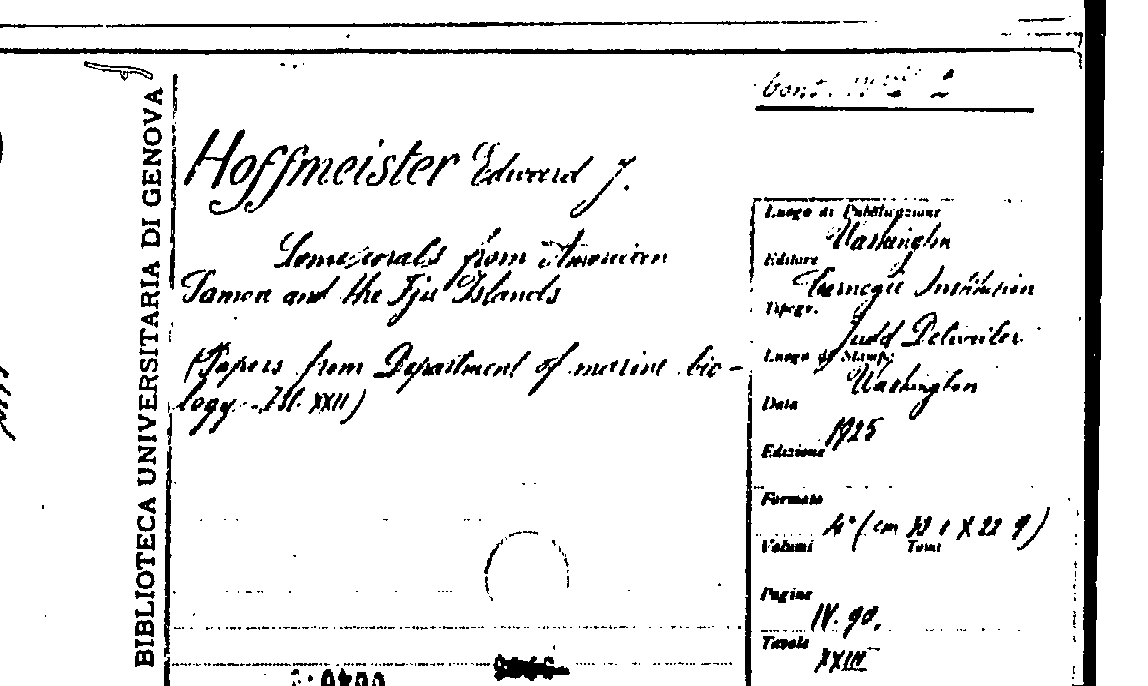 BIBLIOTECA UNIVERSITARIA DI GENOVA
Cont.
Hoffmeister Edward J.
Some corals from American
Samoa and the Fiji Islands
(Papers from Department of marine bio-
logy. XXII)
Luogo di Pubblicazione
Washington
Editore
Carnegie Institution
Tipogr.
Judd Detweiler
Luogo di Stampa
Washington
Data
1925
Edizione
Formato
4° (cm X 22 9)
Volumi Tomi
Pagine
IV. 90.
Tavole
XXIII